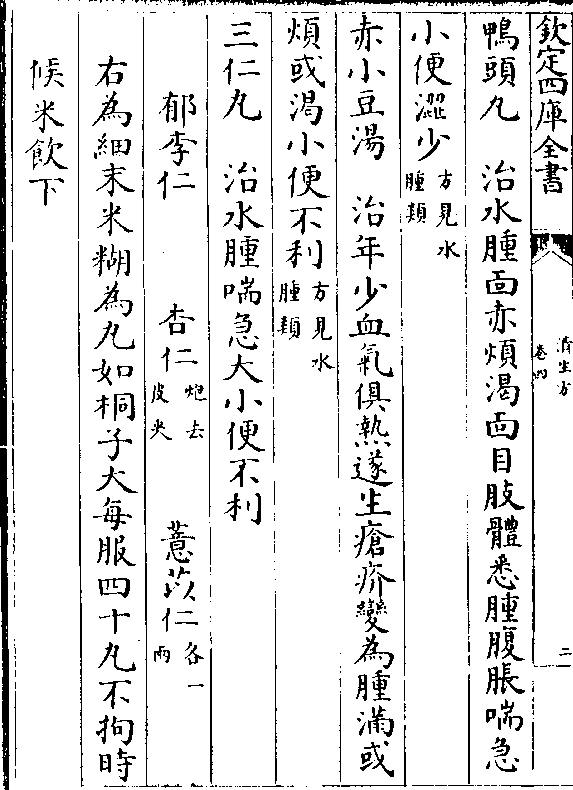 欽定四庫全書
濟生方
卷四
二
鴨頭丸　治水腫面赤煩渴面目肢體悉腫腹脹喘急
小便澀少方見水腫類
赤小豆湯　治年少血氣俱熱遂生瘡疥變為腫滿或
煩或渴小便不利方見水腫類
三仁丸　治水腫喘急大小便不利
郁李仁　杏仁炮去皮尖　薏苡仁各一兩
右為細末米糊為丸如桐子大每服四十丸不拘時
候米飲下